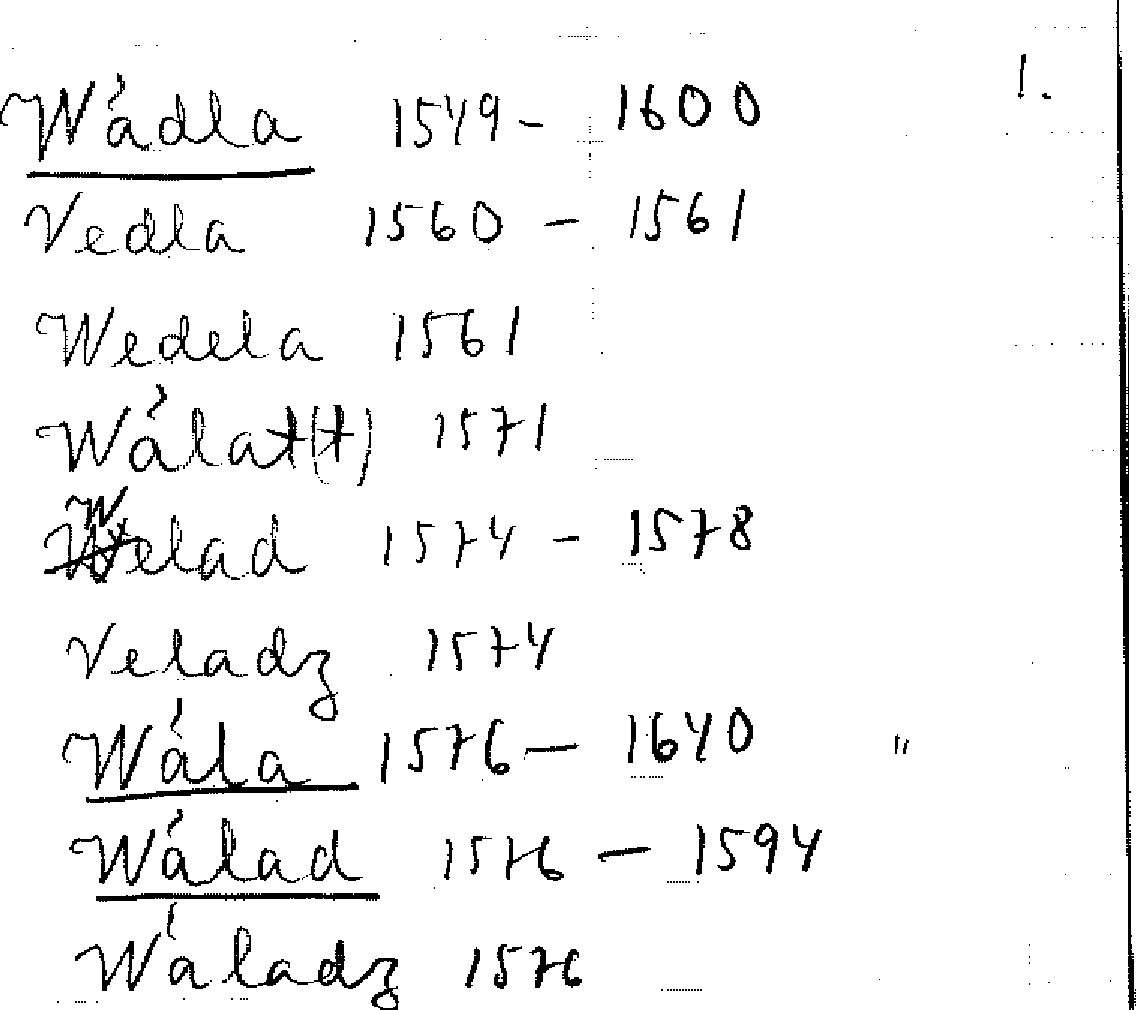 Wádla 1549 - 1600 1.
Vedla 1560 - 1561
Wedela 1561
Wálat(t) 1571
Welad 1574 - 1578
Veladz 1574
Wála 1576 - 1640 "
Wálad 1576 - 1594
Wáladz 1576